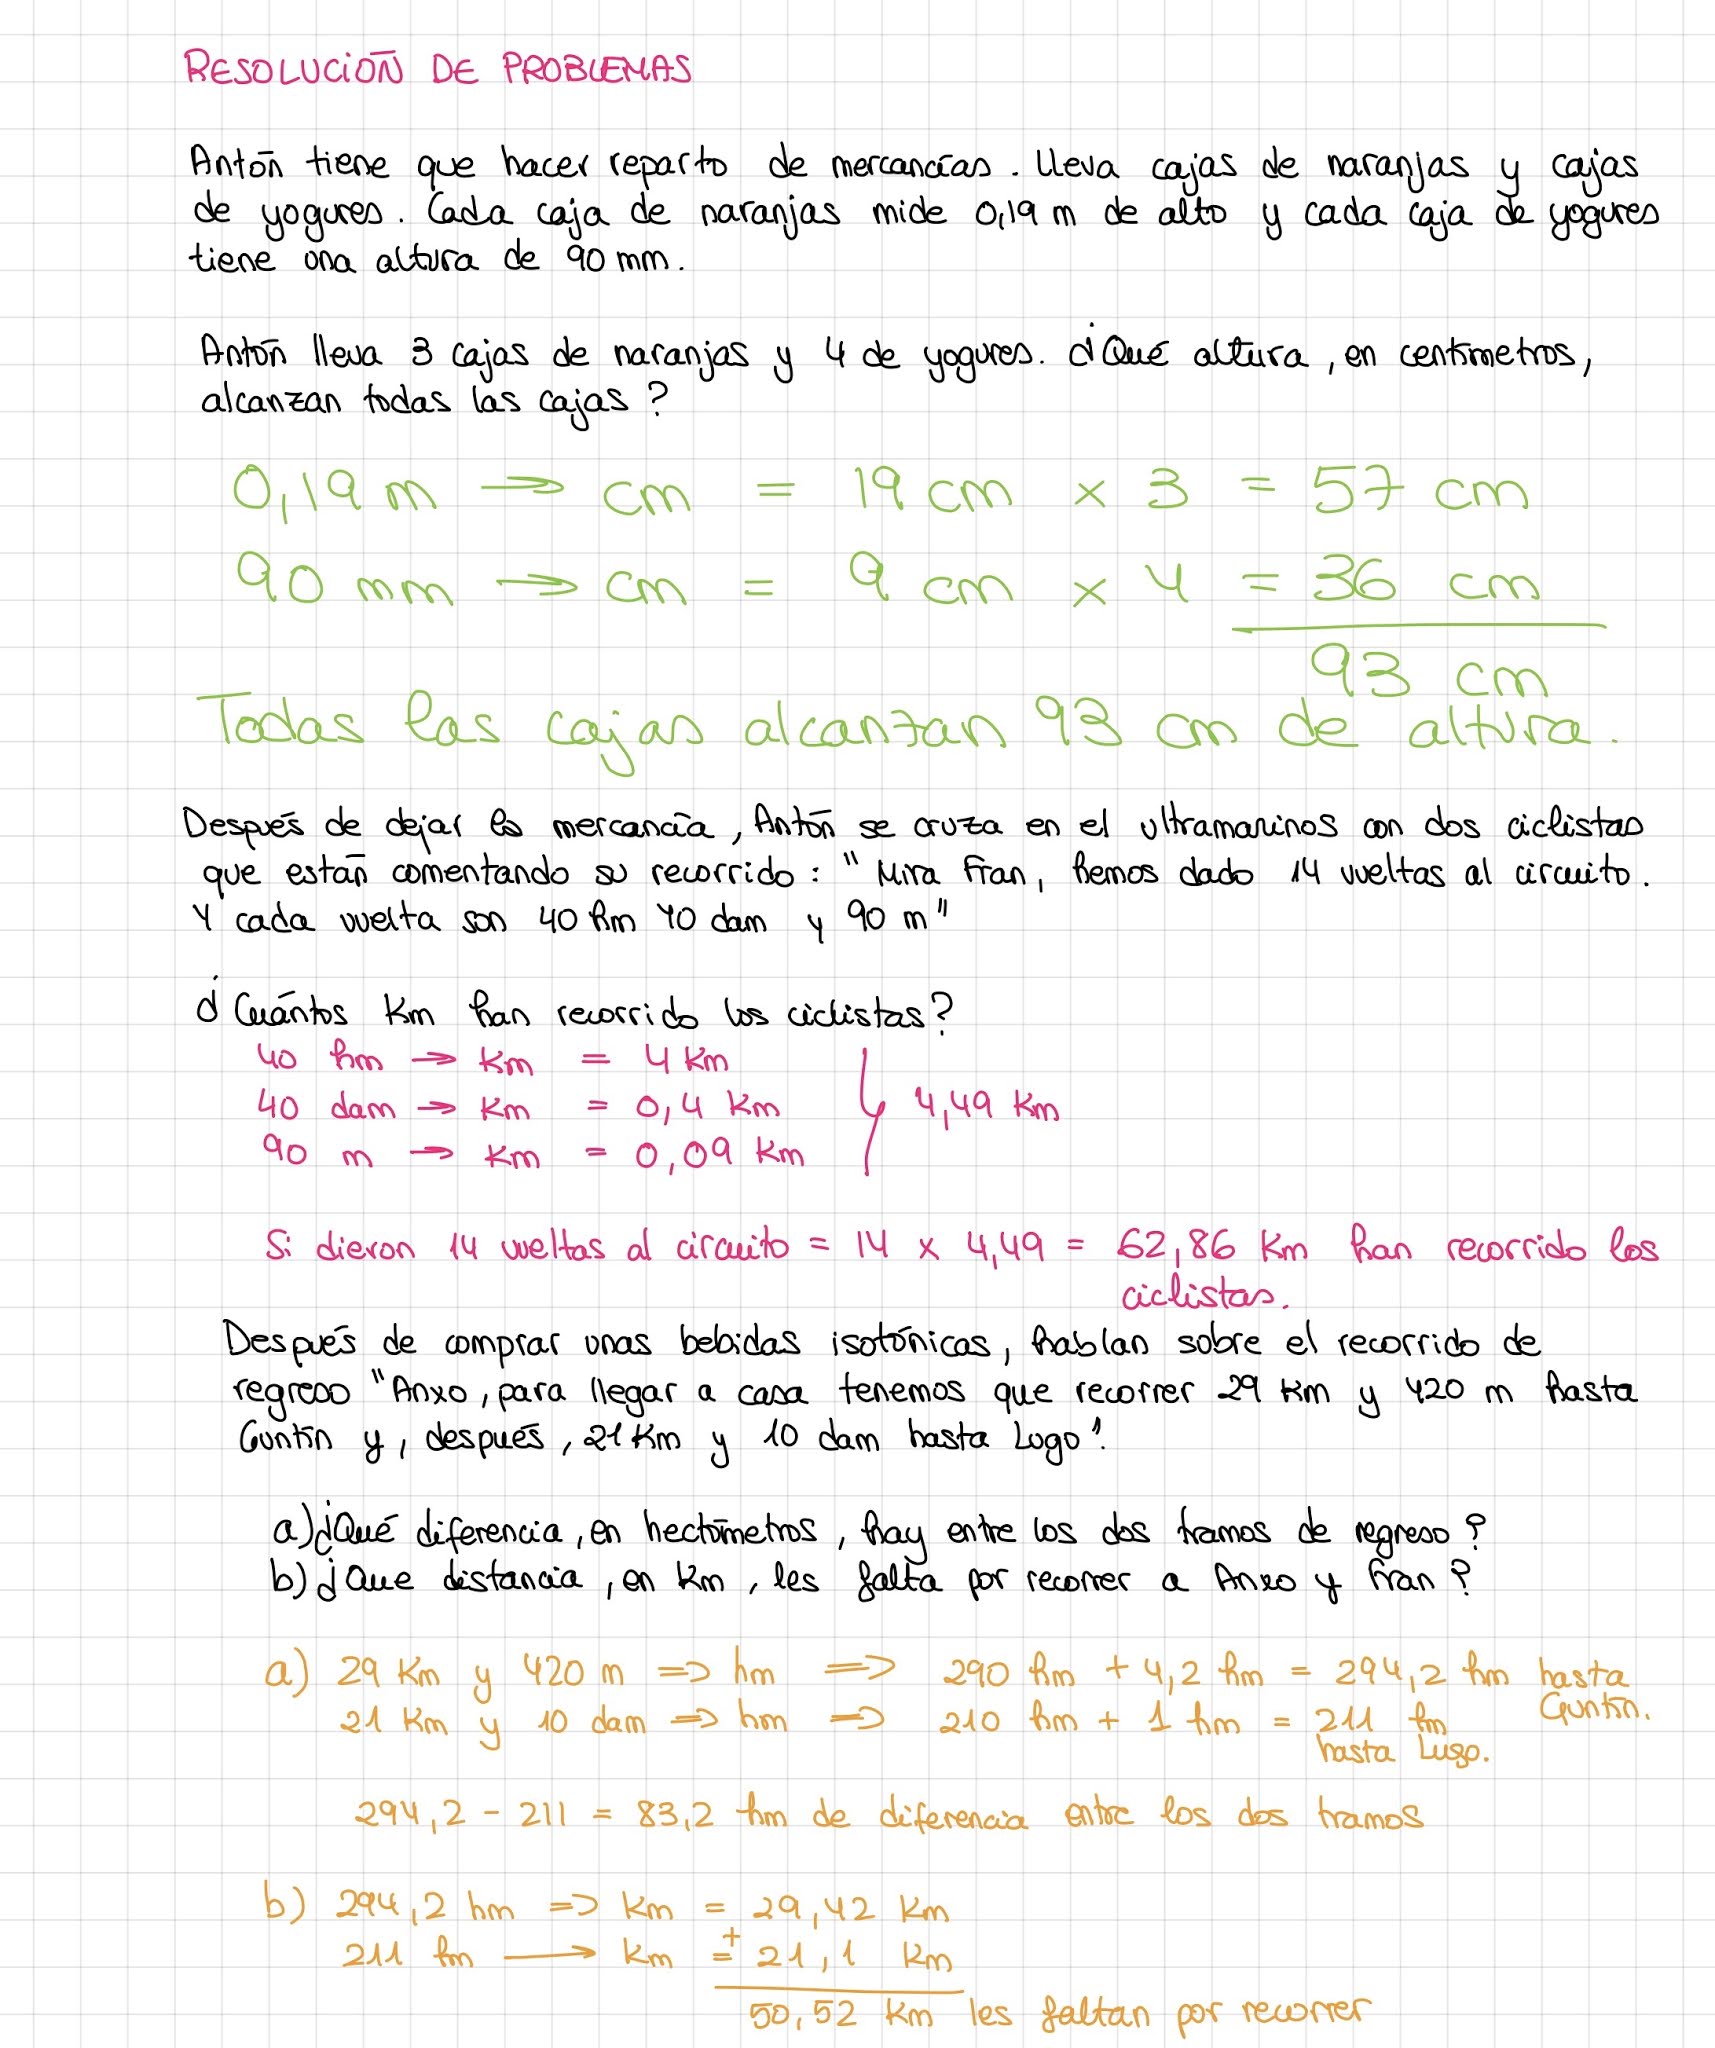 RESOLUCIÓN DE PROBLEMAS
Antón tiene que hacer reparto de mercancías. Lleva cajas de naranjas y cajas
de yogures. Cada caja de naranjas mide 0,19 m de alto y cada caja de yogures
tiene una altura de 90 mm.
Antón lleva 3 cajas de naranjas y 4 de yogures. ¿Qué altura, en centímetros,
alcanzan todas las cajas?
0,19 m → cm = 19 cm × 3 = 57 cm
90 mm → cm = 9 cm × 4 = 36 cm
93 cm
Todas las cajas alcanzan 93 cm de altura.
Después de dejar la mercancía, Antón se cruza en el ultramarinos con dos ciclistas
que están comentando su recorrido: "Mira Fran, hemos dado 14 vueltas al circuito.
Y cada vuelta son 40 hm 40 dam y 90 m"
¿Cuántos Km han recorrido los ciclistas?
40 hm → Km = 4 Km
40 dam → Km = 0,4 Km 4,49 Km
90 m → Km = 0,09 Km
Si dieron 14 vueltas al circuito = 14 × 4,49 = 62,86 Km han recorrido los
ciclistas.
Después de comprar unas bebidas isotónicas, hablan sobre el recorrido de
regreso "Anxo, para llegar a casa tenemos que recorrer 29 Km y 420 m hasta
Guntín y, después, 21 Km y 10 dam hasta Lugo".
a) ¿Qué diferencia, en hectómetros, hay entre los dos tramos de regreso?
b) ¿Que distancia, en Km, les falta por recorrer a Anxo y Fran?
a) 29 Km y 420 m => hm => 290 hm + 4,2 hm = 294,2 hm hasta
Guntín.
21 Km y 10 dam => hm => 210 hm + 1 hm = 211 hm
hasta Lugo.
294,2 - 211 = 83,2 hm de diferencia entre los dos tramos
b) 294,2 hm => Km = 29,42 Km
+
211 hm → Km = 21,1 Km
50,52 Km les faltan por recorrer